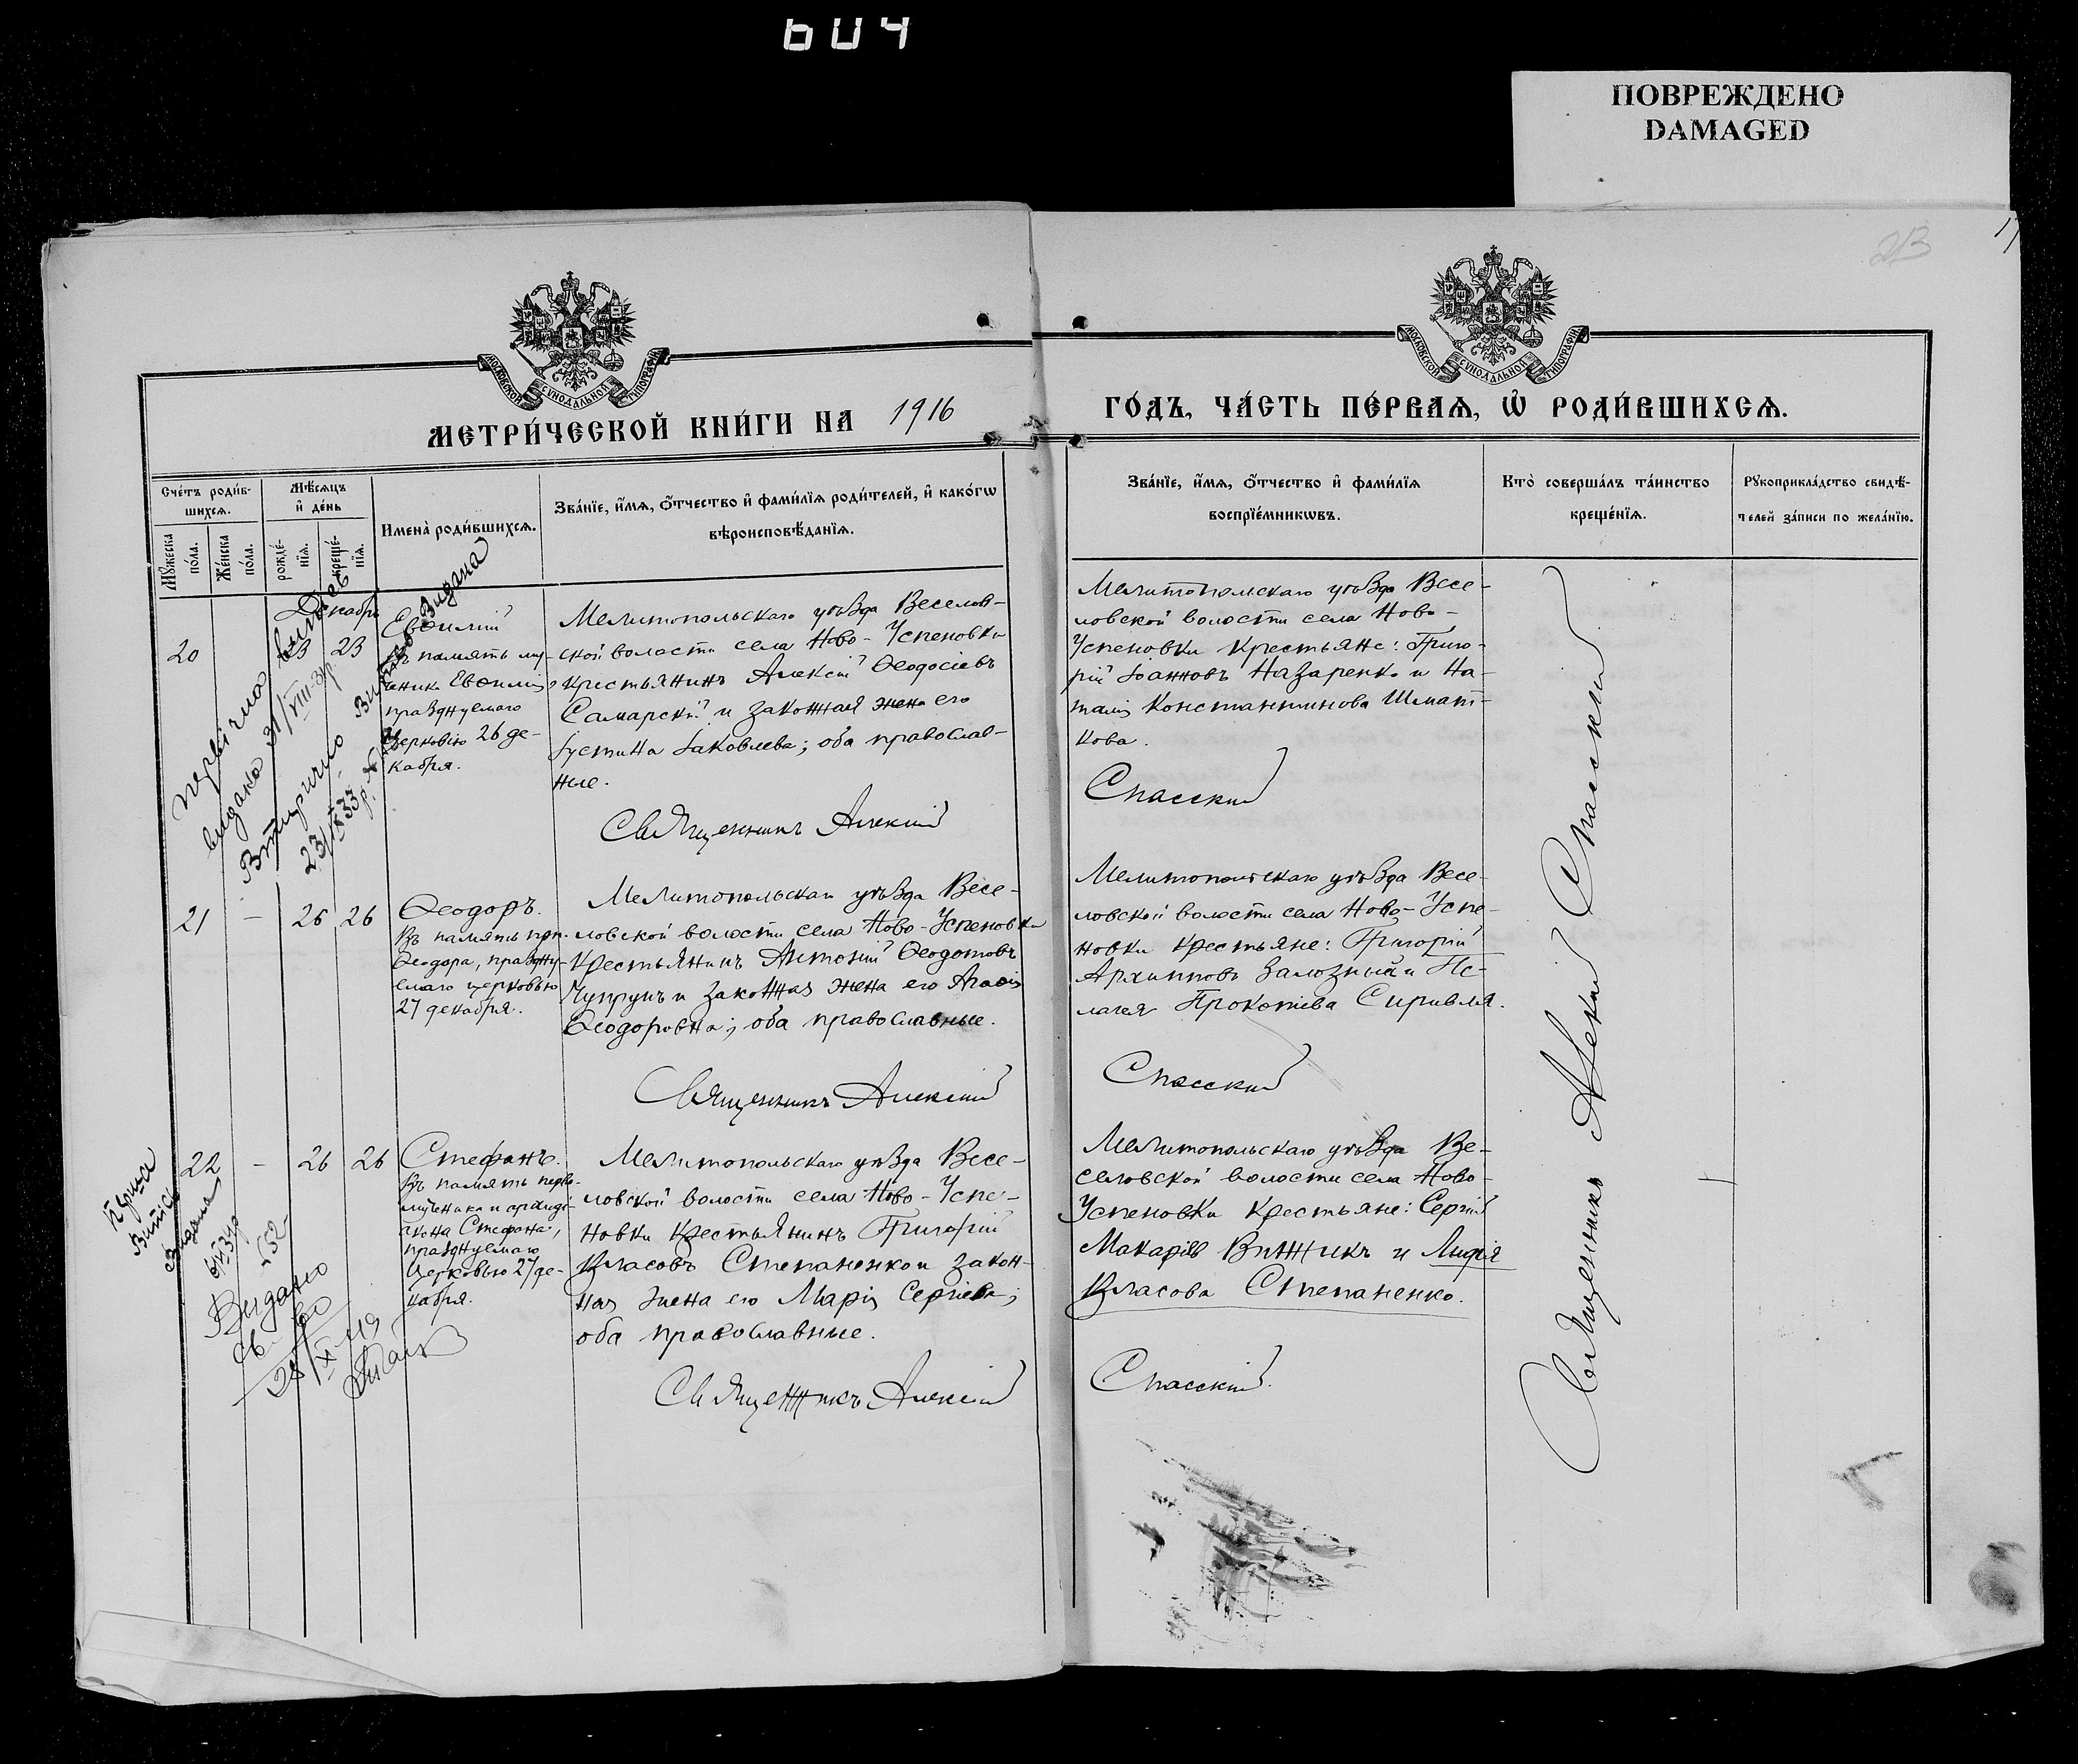 604
ПОВРЕЖДЕНО
DAMAGED
23
МОСКОВСКОЙ СѴНОДАЛЬНОЙ ТИПОГРАФІИ
МОСКОВСКОЙ СѴНОДАЛЬНОЙ ТИПОГРАФІИ
МЕТРИ́ЧЕСКОЙ КНИ́ГИ НА 1916
ГО́ДЪ, ЧА́СТЬ ПЕ́РВАѦ, Ѡ РОДИ́ВШИХСѦ.
Сче́тъ роди́в-
шихсѧ.
Мꙋ́жеска по́ла.
Же́нска по́ла.
Мѣ́сѧцъ
и҆ де́нь
рожде́-
нїѧ.
креще́-
нїѧ.
Имена̀ роди́вшихсѧ.
Зва́нїе, и҆́мѧ, ѻ҆́тчество и҆ фами́лїѧ роди́телей, и҆ како́гѡ
вѣроисповѣ́данїѧ.
Зва́нїе, и҆́мѧ, ѻ҆́тчество и҆ фами́лїѧ
воспрїе́мникѡвъ.
Кто̀ соверша́лъ та́инство
креще́нїѧ.
Рꙋкоприкла́дство свидѣ́-
телей за́писи по жела́нїю.
Декабрь
20
23 23
Евѳимій
въ память му-
ченика Евѳимія,
празднуемаго
Церковію 26 де-
кабря.
Мелитопольскаго уѣзда Веселов-
ской волости села Ново-Успеновки
крестьянинъ Алексій Ѳеодосіевъ
Самарскій и законная жена его
Іустина Іаковлева; оба православ-
ные.
Священникъ Алексій
Мелитопольскаго уѣзда Весе-
ловской волости села Ново-
Успеновки крестьяне: Григо-
рій Іоанновъ Назаренко и На-
талія Константинова Шмат-
кова.
Спасскій
первічна
видана 31/VIII-31р.
Вторично
23/IX 33 р.
Видана
21 - 26 26
Ѳеодоръ.
Въ память преп.
Ѳеодора, праздну-
емаго церковью
27 декабря.
Мелитопольскаго уѣзда Весе-
ловской волости села Ново-Успеновки
крестьянинъ Антоній Ѳеодотовъ
Чупрунъ и законная жена его Агаѳія
Ѳеодоровна; оба православные.
Священникъ Алексій
Мелитопольскаго уѣзда Весе-
ловской волости села Ново-Успе-
новки крестьяне: Григорій
Архипповъ Залозный и Пе-
лагея Прокопіева Сиривля.
Спасскій
22 - 26 26
Стефанъ.
Въ память перво-
мученика и архиді-
акона Стефана,
празднуемаго
Церковью 27 де-
кабря.
Мелитопольскаго уѣзда Весе-
ловской волости села Ново-Успе-
новки крестьянинъ Григорій
Власовъ Степаненко и закон-
ная жена его Марія Сергіева;
оба православные.
Священникъ Алексій
Мелитопольскаго уѣзда Ве-
селовской волости села Ново-
Успеновки крестьяне: Сергій
Макаріевъ Вижикъ и Лидія
Власова Степаненко.
Спасскій.
Видано
св-во
28/XI-19
Священникъ Алексій Спасскій